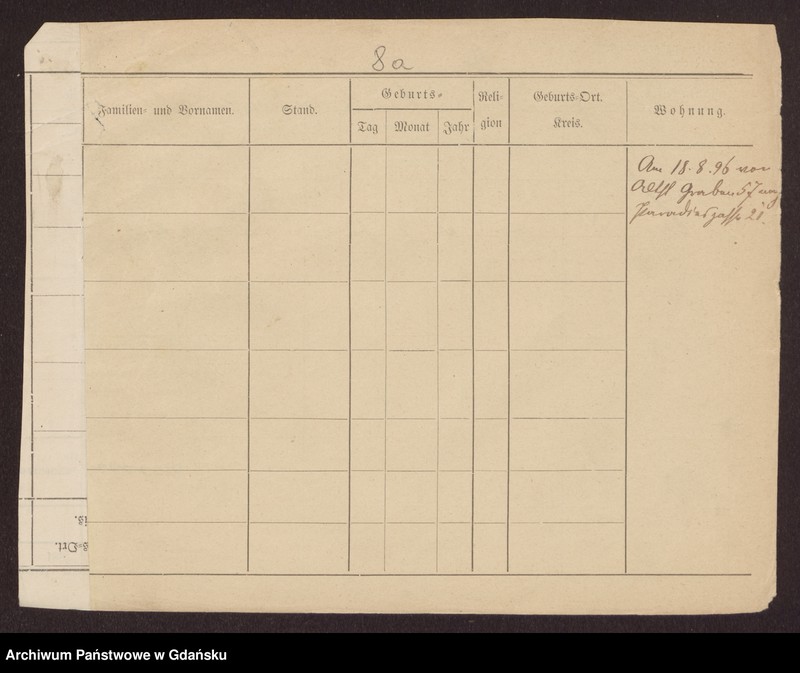 8a
Familien- und Vornamen.
Stand.
Geburts-
Tag
Monat
Jahr
Reli-
gion
Geburts-Ort.
Kreis.
Wohnung.
Am 18.8.96 von
Altst Graben 57 nach
Paradiesgasse 21.
is.
s-Ort.
Archiwum Państwowe w Gdańsku